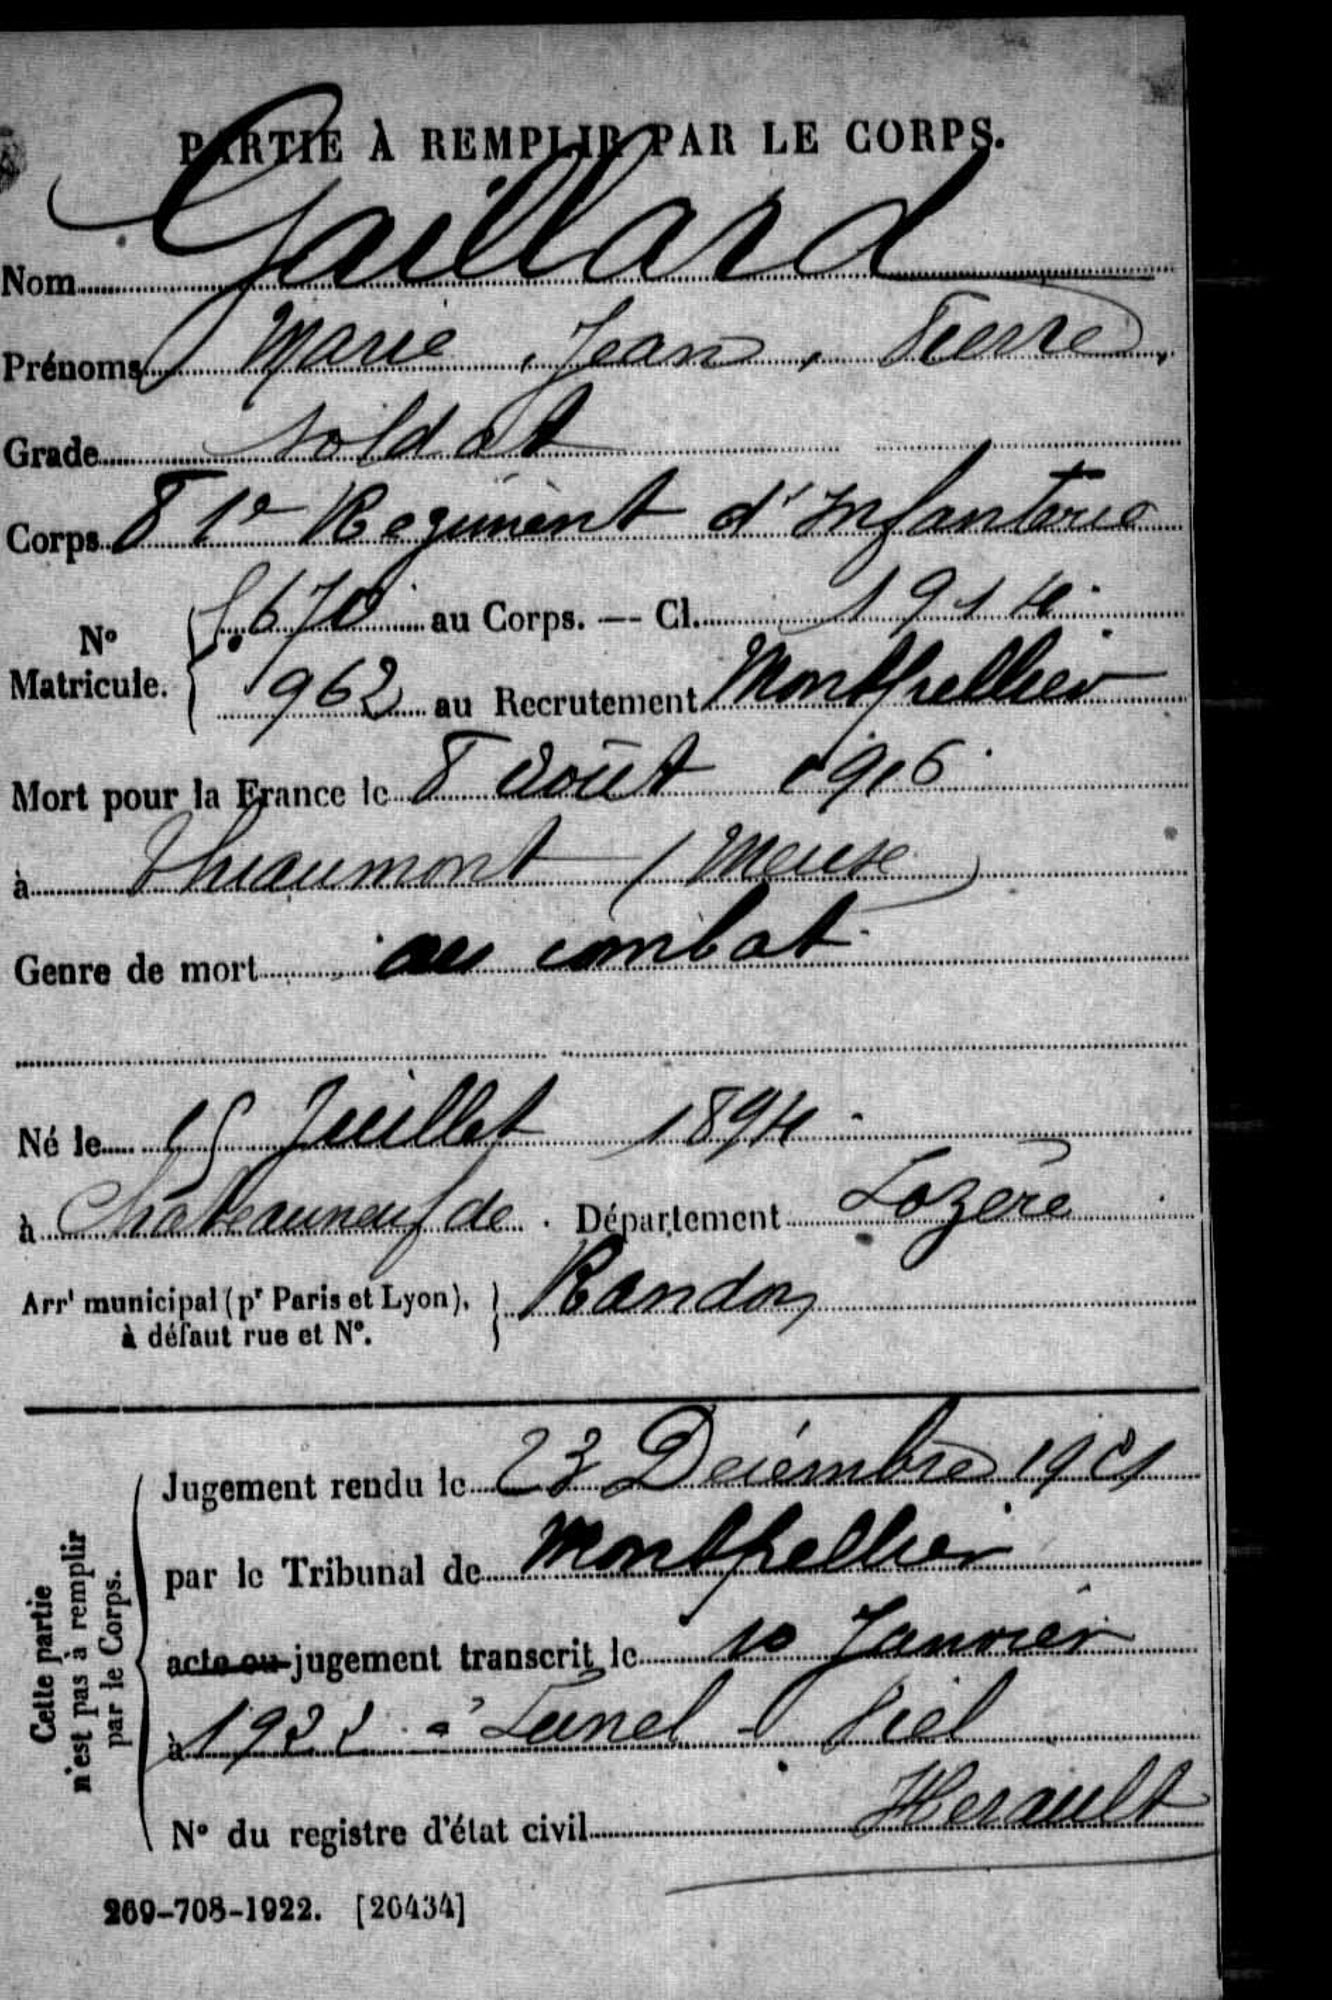 PARTIE À REMPLIR PAR LE CORPS.
Nom Gaillard
Prénoms Marie, Jean, Pierre,
Grade soldat
Corps 81e Regiment d'Infanterie
N° Matricule. { 5.670 au Corps. — Cl. 1914
962 au Recrutement Montpellier
Mort pour la France le 8 Août 1916
à Thiaumont (Meuse)
Genre de mort au combat
Né le 15 Juillet 1894
à Châteauneuf de Département Lozère
Arrt municipal (pr Paris et Lyon), à défaut rue et N°. } Randon
Cette partie n'est pas à remplir par le Corps.
Jugement rendu le 23 Décembre 1921
par le Tribunal de Montpellier
acte ou jugement transcrit le 10 Janvier
à 1922 à Lunel-Viel
N° du registre d'état civil Herault
269-708-1922. [26434]